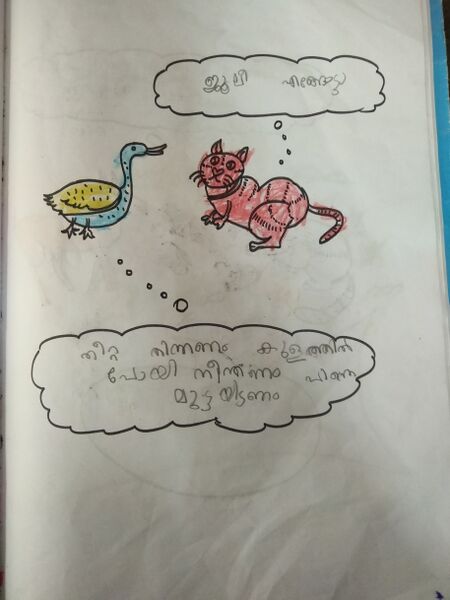 ജൂലി എങ്ങോട്ടു
തീറ്റ തിന്നണം കുളത്തിൽ
പോയി നീന്തണം പിന്നെ
മുട്ടയിടണം